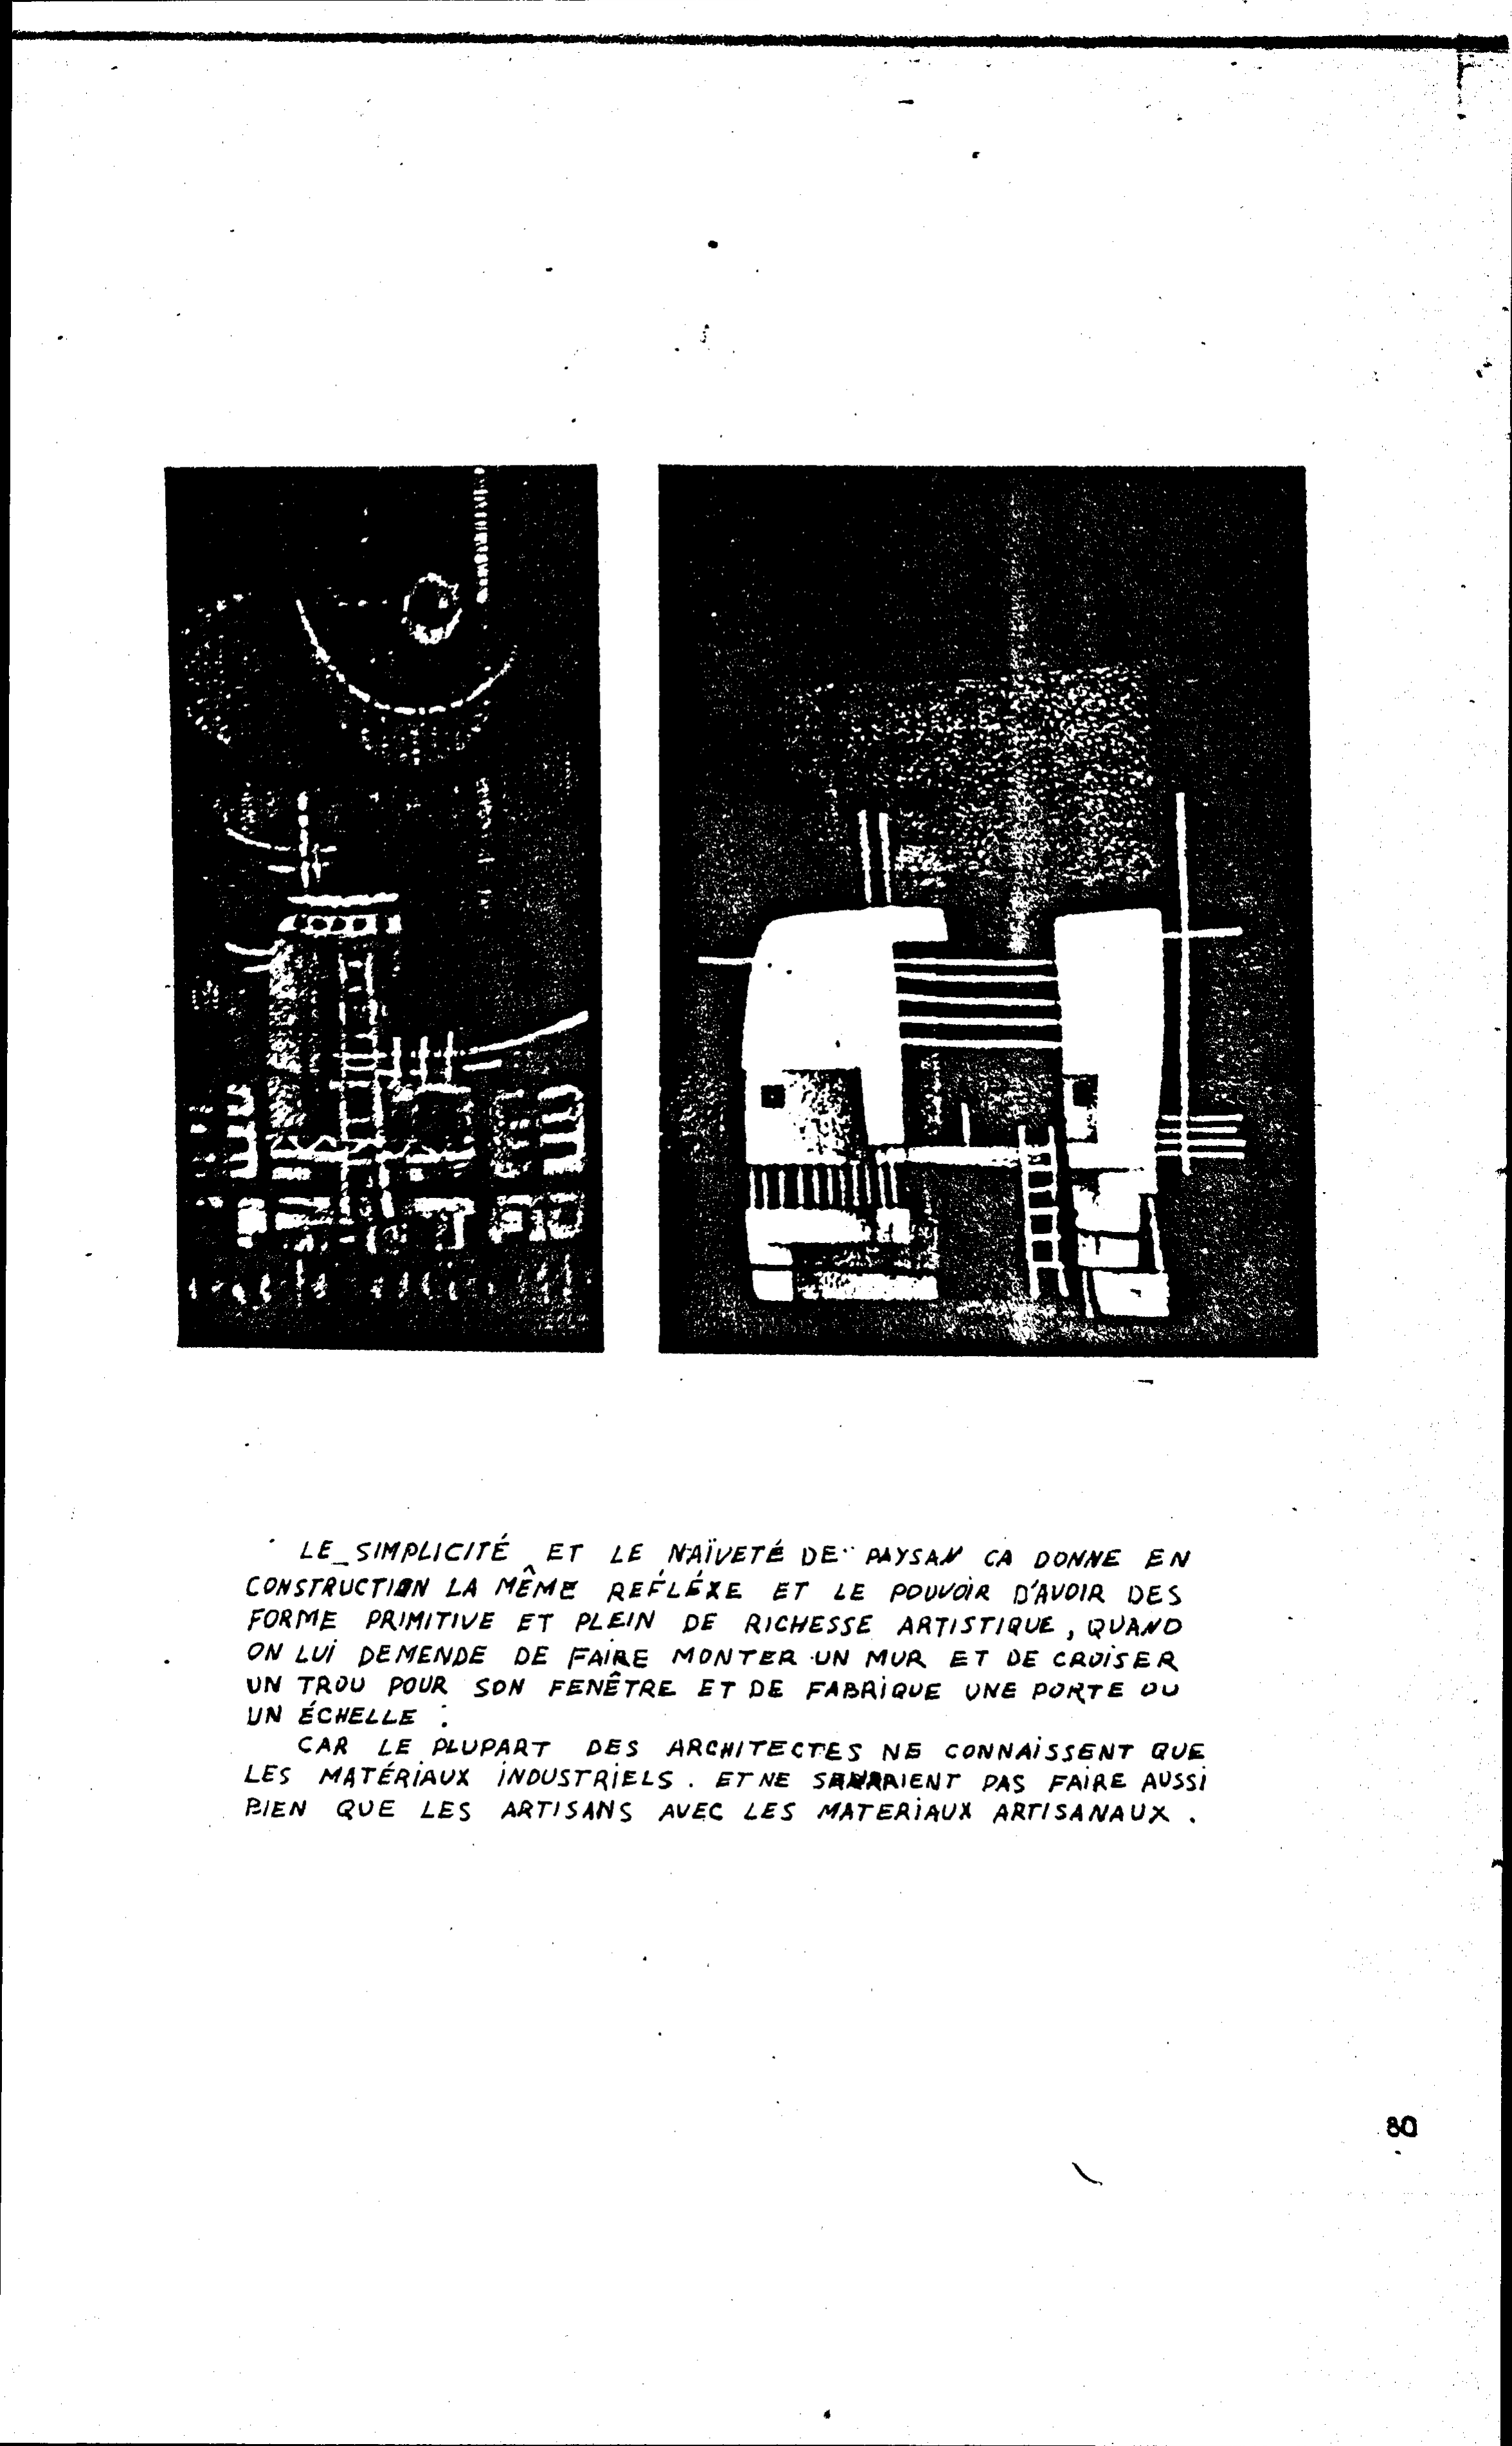 LE SIMPLICITÉ ET LE NAÏVETÉ DE PAYSAN CA DONNE EN
CONSTRUCTION LA MÊME REFLÉXE ET LE POUVOIR D'AVOIR DES
FORME PRIMITIVE ET PLEIN DE RICHESSE ARTISTIQUE, QUAND
ON LUI DEMENDE DE FAIRE MONTER UN MUR ET DE CROISER
UN TROU POUR SON FENÊTRE ET DE FABRIQUE UNE PORTE OU
UN ÉCHELLE :
CAR LE PLUPART DES ARCHITECTES NE CONNAISSENT QUE
LES MATÉRIAUX INDUSTRIELS. ET NE PAS FAIRE AUSSI
BIEN QUE LES ARTISANS AVEC LES MATERIAUX ARTISANAUX.
80